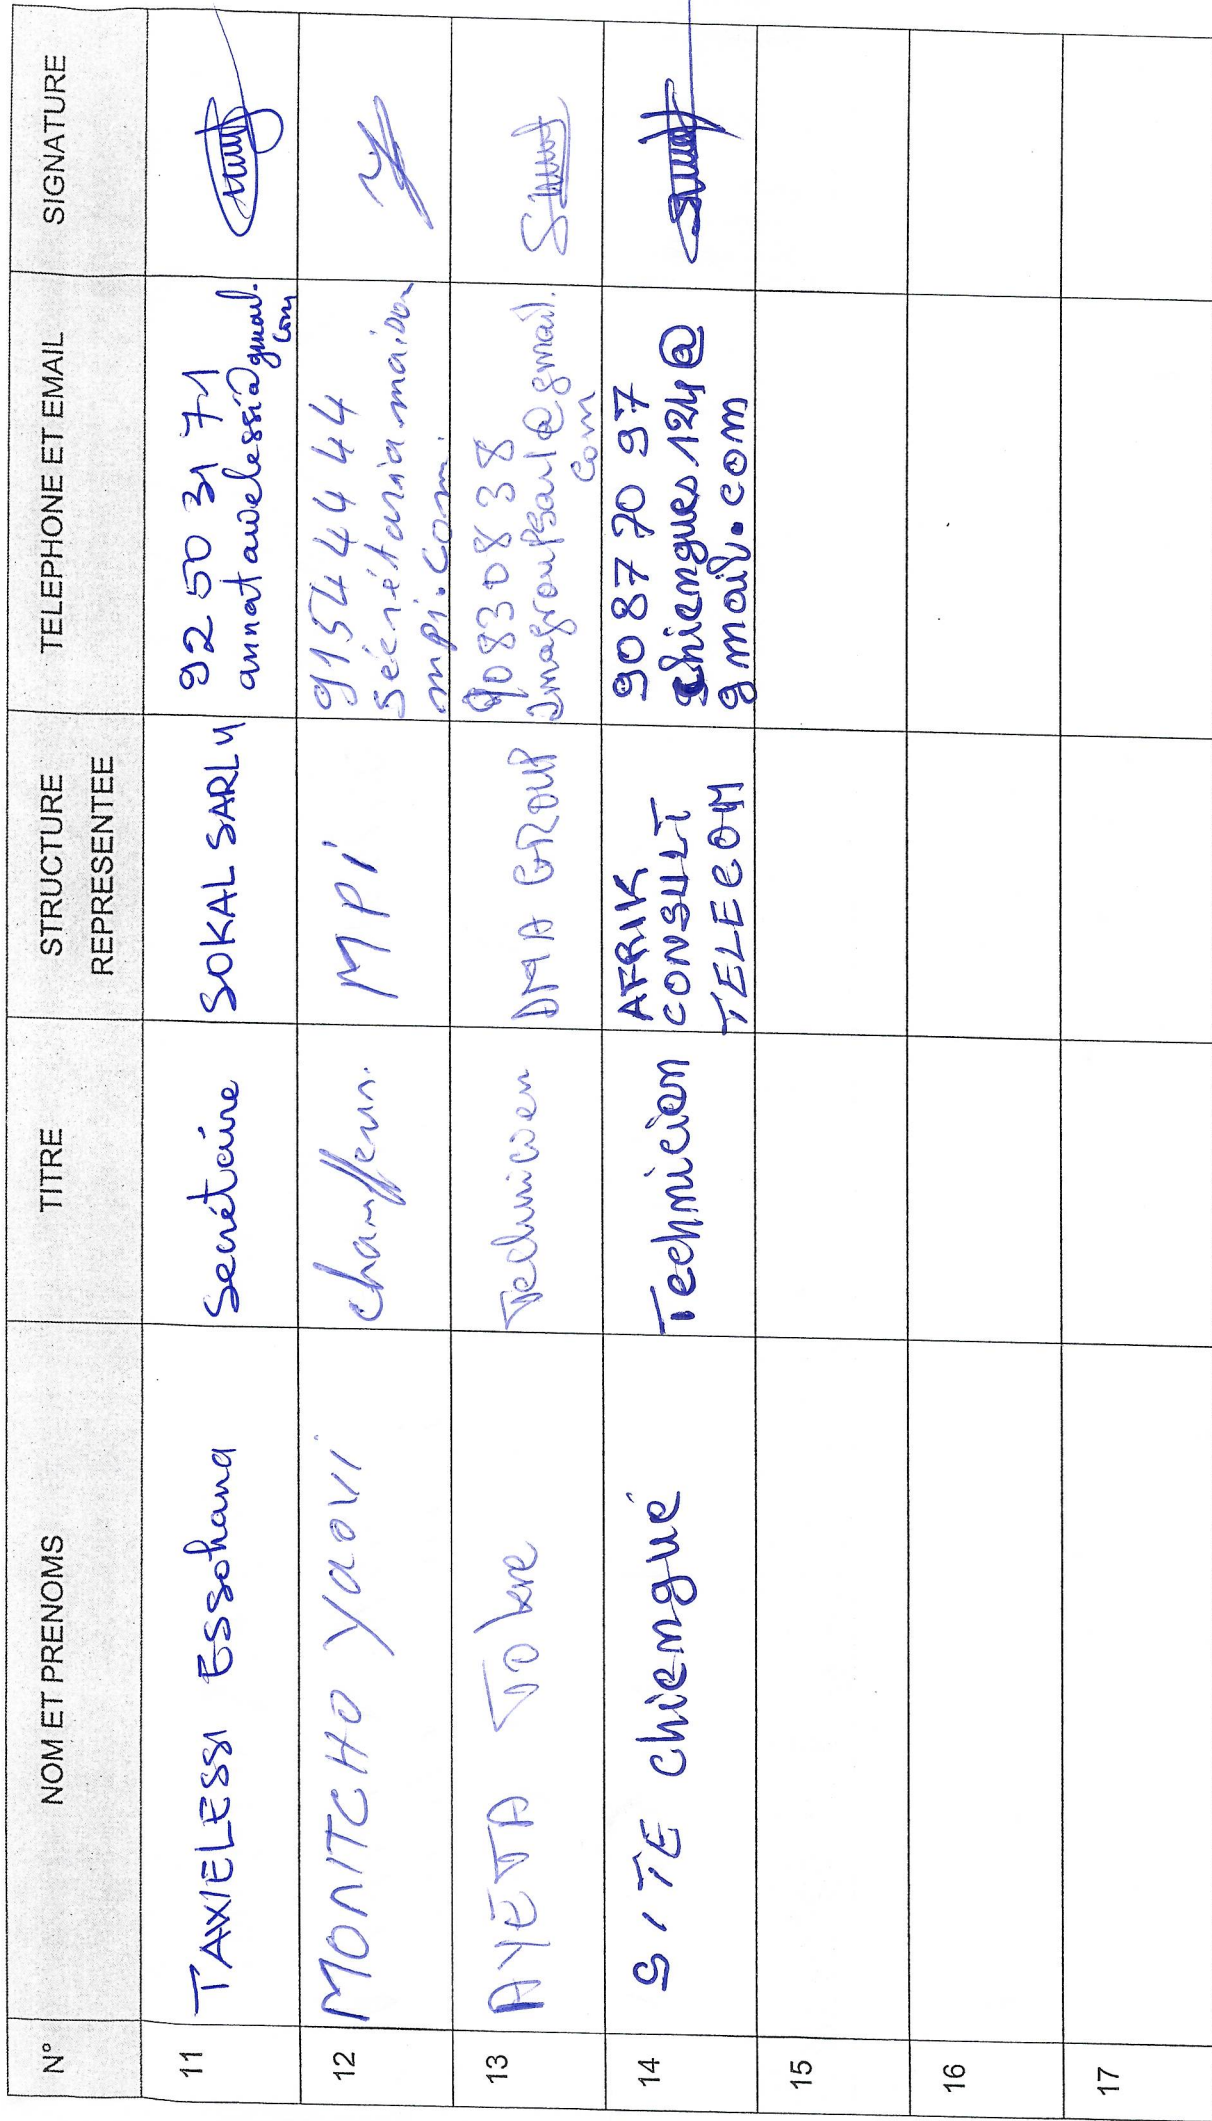 N° NOM ET PRENOMS TITRE STRUCTURE REPRESENTEE TELEPHONE ET EMAIL SIGNATURE
11 TAWELESSI Essohana Secrétaire SOKAL SARL U 92 50 31 71
annatawelessi@gmail.
com
12 MONITCHO Yaovi chauffeur. MPI 91544444
sécrétariamaison
mpi.com
13 AYETA Tokre Technicien DMA GROUP 90830838
Dmagroupsarl@gmail.
com
14 SITE Chiemgué Technicien AFRIK
CONSULT
TELECOM
90 87 70 97
chiemgues124@
gmail.com
15
16
17